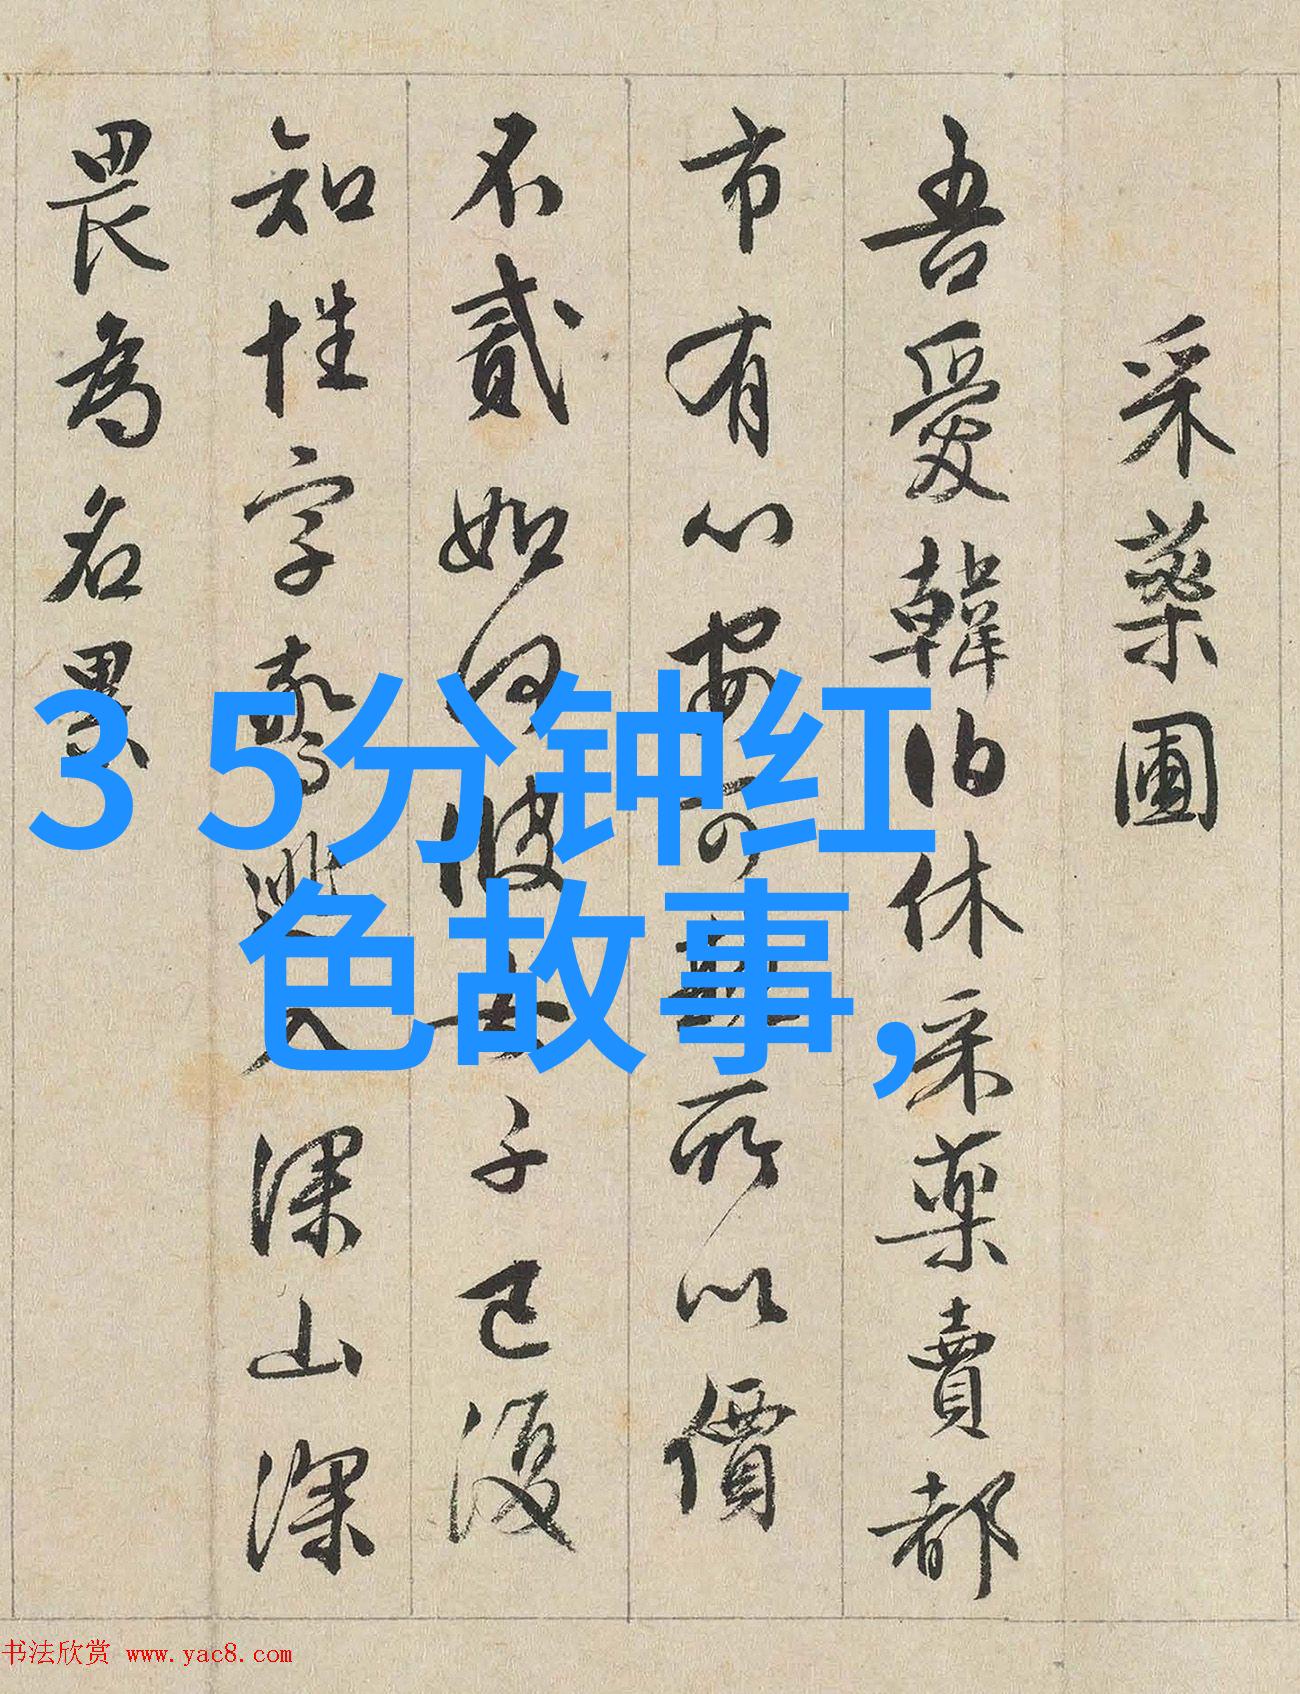 采藥圃
吾愛韓伯休采藥賣都
市有心安可所以價
不貳如何彼女子已復
知姓字驚逃入深山深
畏為名累
3 5分钟红
色故事,
书法欣赏 www.yac8.com